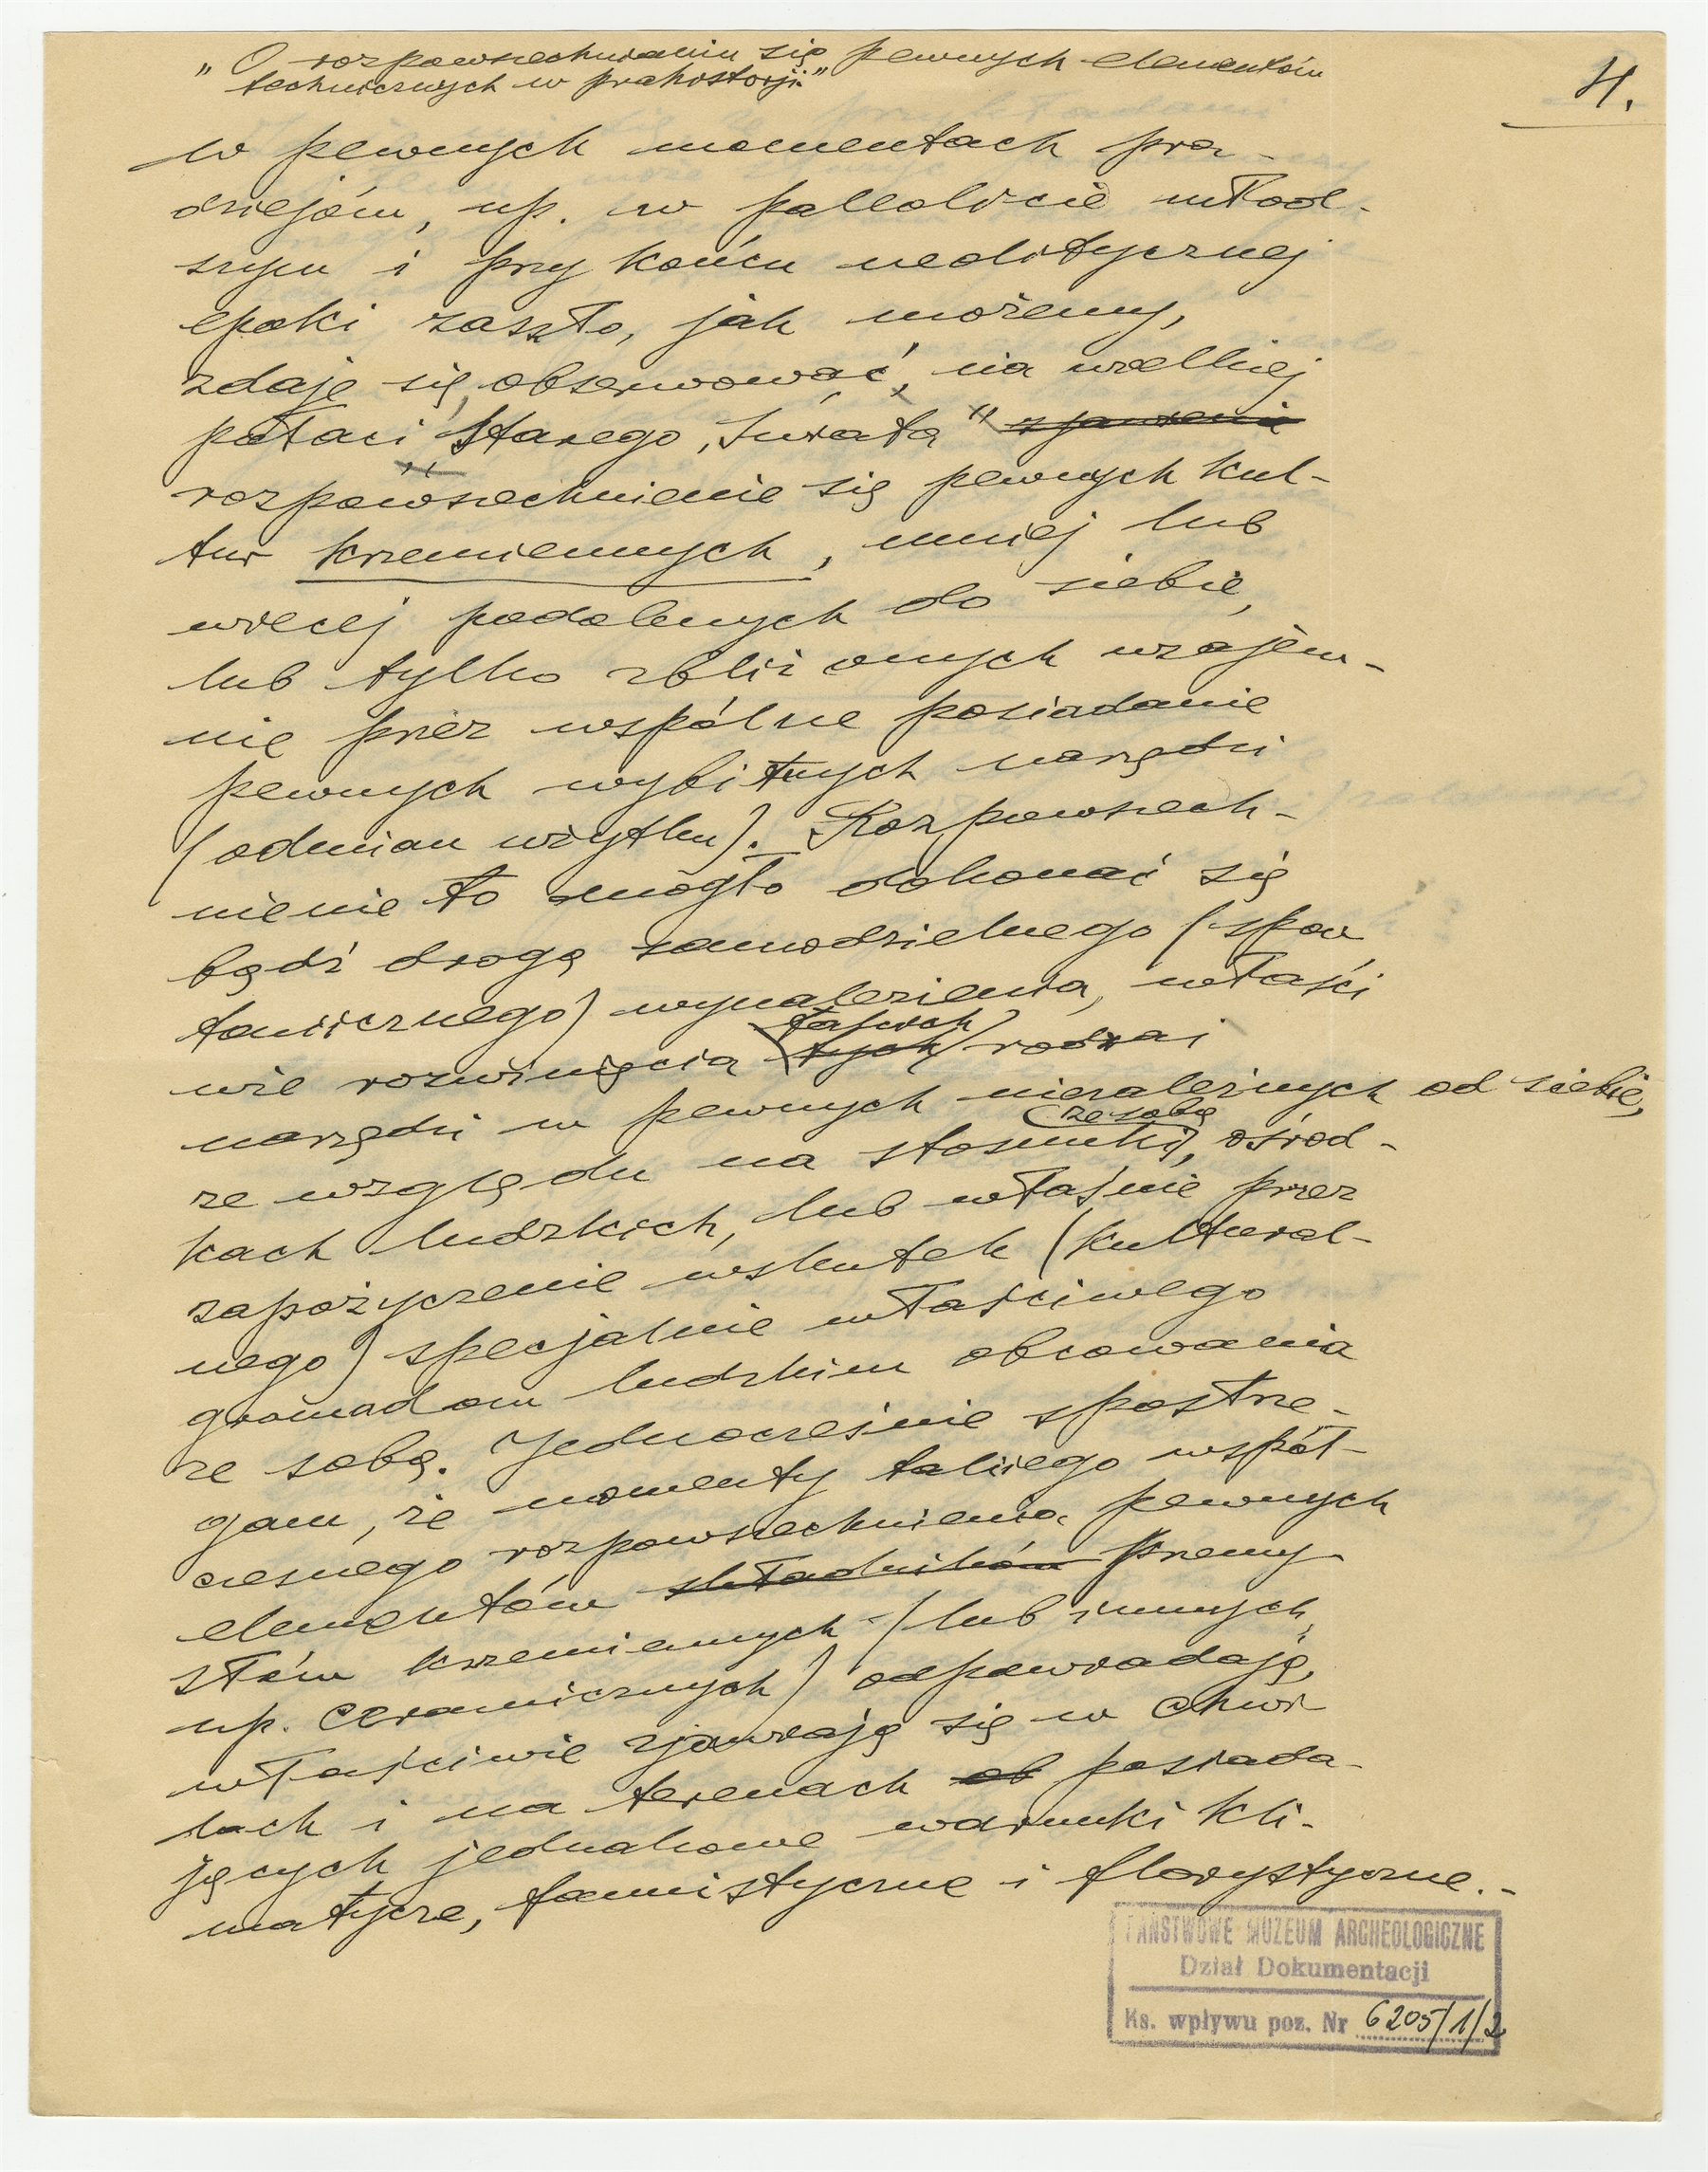 „O rozpowszechnianiu się pewnych elementów
technicznych w prahistorji.”
4.
w pewnych momentach pra-
dziejów, np. w paleolicie młod-
szym i przy końcu neolitycznej
epoki zaszło, jak możemy,
zdaje się, obserwować, na wielkiej
połaci „Starego Świata” zjawienie
rozpowszechnienie się pewnych kul-
tur krzemiennych, mniej lub
więcej podobnych do siebie,
lub tylko zbliżonych wzajem-
nie przez wspólne posiadanie
pewnych wybitnych narzędzi
(odmian użytku). Rozpowszech-
nienie to mogło dokonać się
bądź drogą samodzielnego (spon
tanicznego) wynalezienia, właści
wie rozwinięcia tych takich rodzai
narzędzi w pewnych niezależnych od siebie,
ze względu na stosunki ze sobą, ośrod-
kach ludzkich, lub właśnie przez
zapożyczenie wskutek (kultural-
nego) specjalnie właściwego
gromadom ludzkim obcowania
ze sobą. Jednocześnie spostrze-
gam, że momenty takiego współ-
czesnego rozpowszechnienia pewnych
elementów składników przemy-
słów krzemiennych (lub innych,
np. ceramicznych) odpowiadają,
właściwie zjawiają się w chwi
lach i na terenach ob posiada-
jących jednakowe warunki kli-
matycze, faunistyczne i florystyczne.-
PAŃSTWOWE MUZEUM ARCHEOLOGICZNE
Dział Dokumentacji
Ks. wpływu poz. Nr 6205/1/2